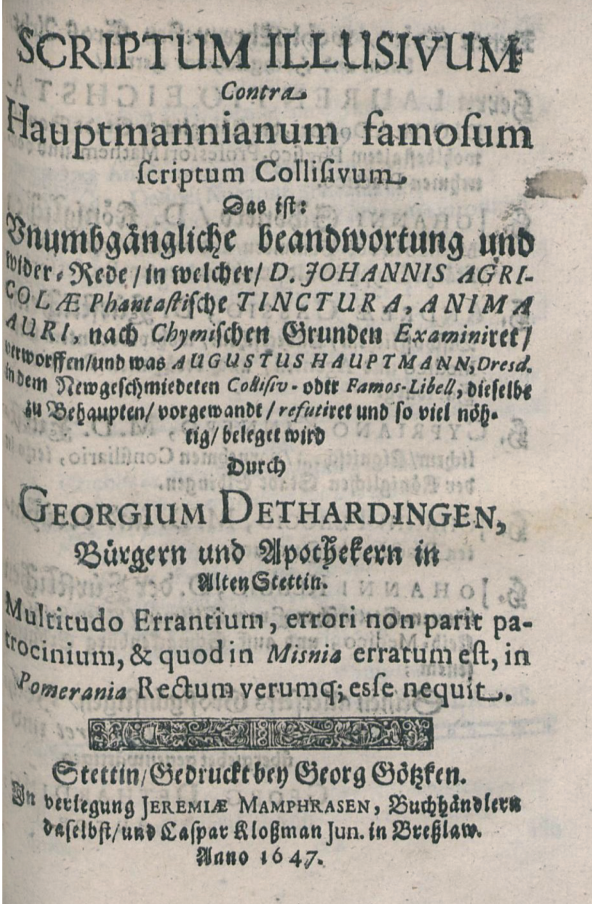 SCRIPTUM ILLUSIVUM
Contra
Hauptmannianum famoſum
ſcriptum Colliſivum.
Das iſt:
Vnumbgängliche beandwortung und
wider-Rede/in welcher/ D. JOHANNIS AGRI-
COLÆ Phantaſtiſche TINCTURA, ANIMA
AURI, nach Chymiſchen Grunden Examiniret/
verworffen/und was AUGUSTUS HAUPTMANN, Dresd.
in dem Newgeſchmiedeten Colliſiv- oder Famos-Libell, dieſelbe
zu Behaupten/ vorgewandt/ refutiret und ſo viel nöh-
tig/ beleget wird
Durch
GEORGIUM DETHARDINGEN,
Bürgern und Apothekern in
Alten Stettin.
Multitudo Errantium, errori non parit pa-
trocinium, & quod in Misnia erratum eſt, in
Pomerania Rectum verumq; eſſe nequit.
Stettin/Gedruckt bey Georg Götzken.
In verlegung JEREMIÆ MAMPHRASEN, Buchhändlern
daſelbſt/und Caſpar Kloßman Jun. in Breßlaw.
Anno 1647.